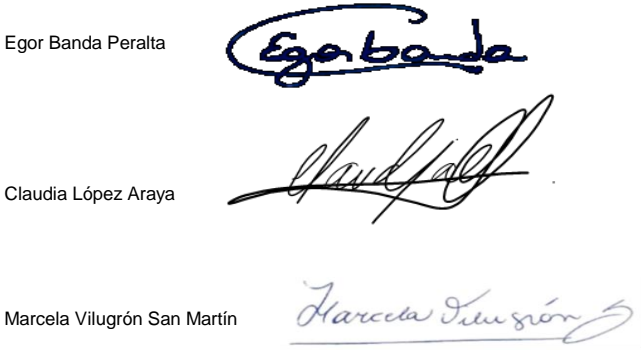 Egor Banda Peralta
Egor banda
Claudia López Araya
Marcela Vilugrón San Martín
Marcela Vilugrón